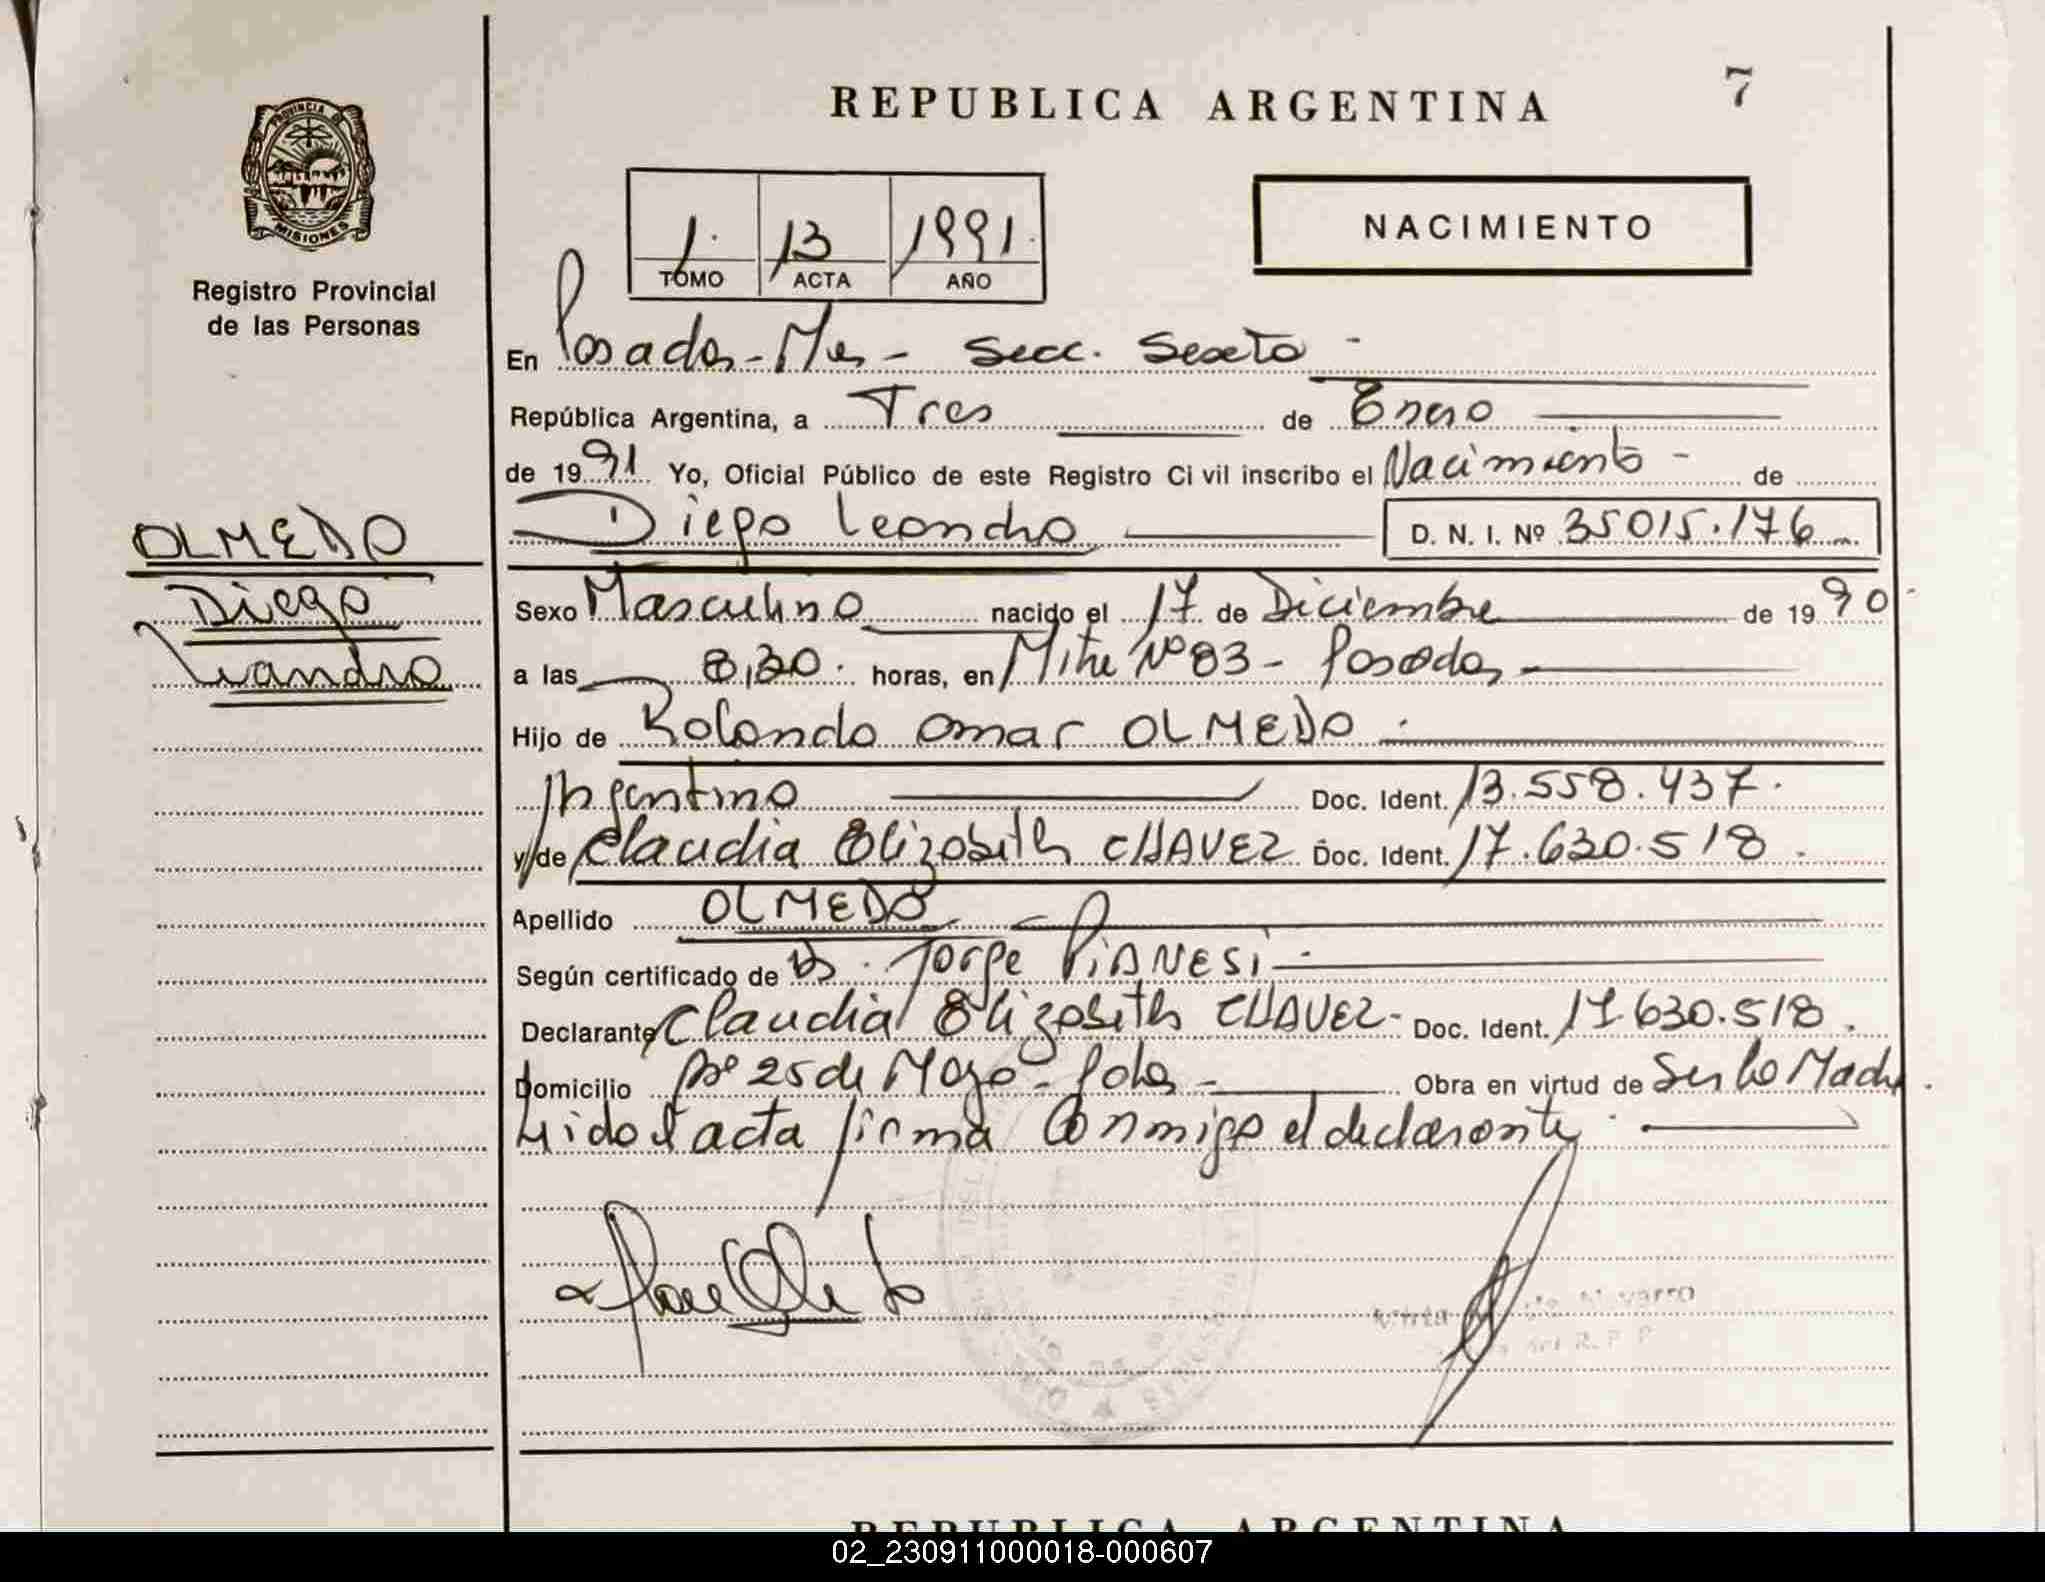 REPUBLICA ARGENTINA
7
PROVINCIA DE
MISIONES
Registro Provincial
de las Personas
1. 13 1991.
TOMO ACTA AÑO
NACIMIENTO
En Posadas - Mnes - Secc. Sexta -
República Argentina, a Tres de Enero
de 1991 Yo, Oficial Público de este Registro Civil inscribo el Nacimiento - de
Diego Leandro D. N. I. Nº 35015.176
OLMEDO
Diego
Leandro
Sexo Masculino nacido el 17 de Diciembre de 1990
a las 8,30. horas, en Mitre Nº 83 - Posadas
Hijo de Rolando Omar OLMEDO.
Argentino Doc. Ident. 13.558.437.
y de Claudia Elizabeth CHAVEZ Doc. Ident. 17.630.518.
Apellido OLMEDO.
Según certificado de Dr. Jorge PIANESI.
Declarante Claudia Elizabeth CHAVEZ - Doc. Ident. 17.630.518.
Domicilio Bº 25 de Mayo - Pdas - Obra en virtud de Ser la Madre.
Leido el acta firma conmigo el declarante.
Navarro
R.P.P
REPUBLICA ARGENTINA
02_230911000018-000607